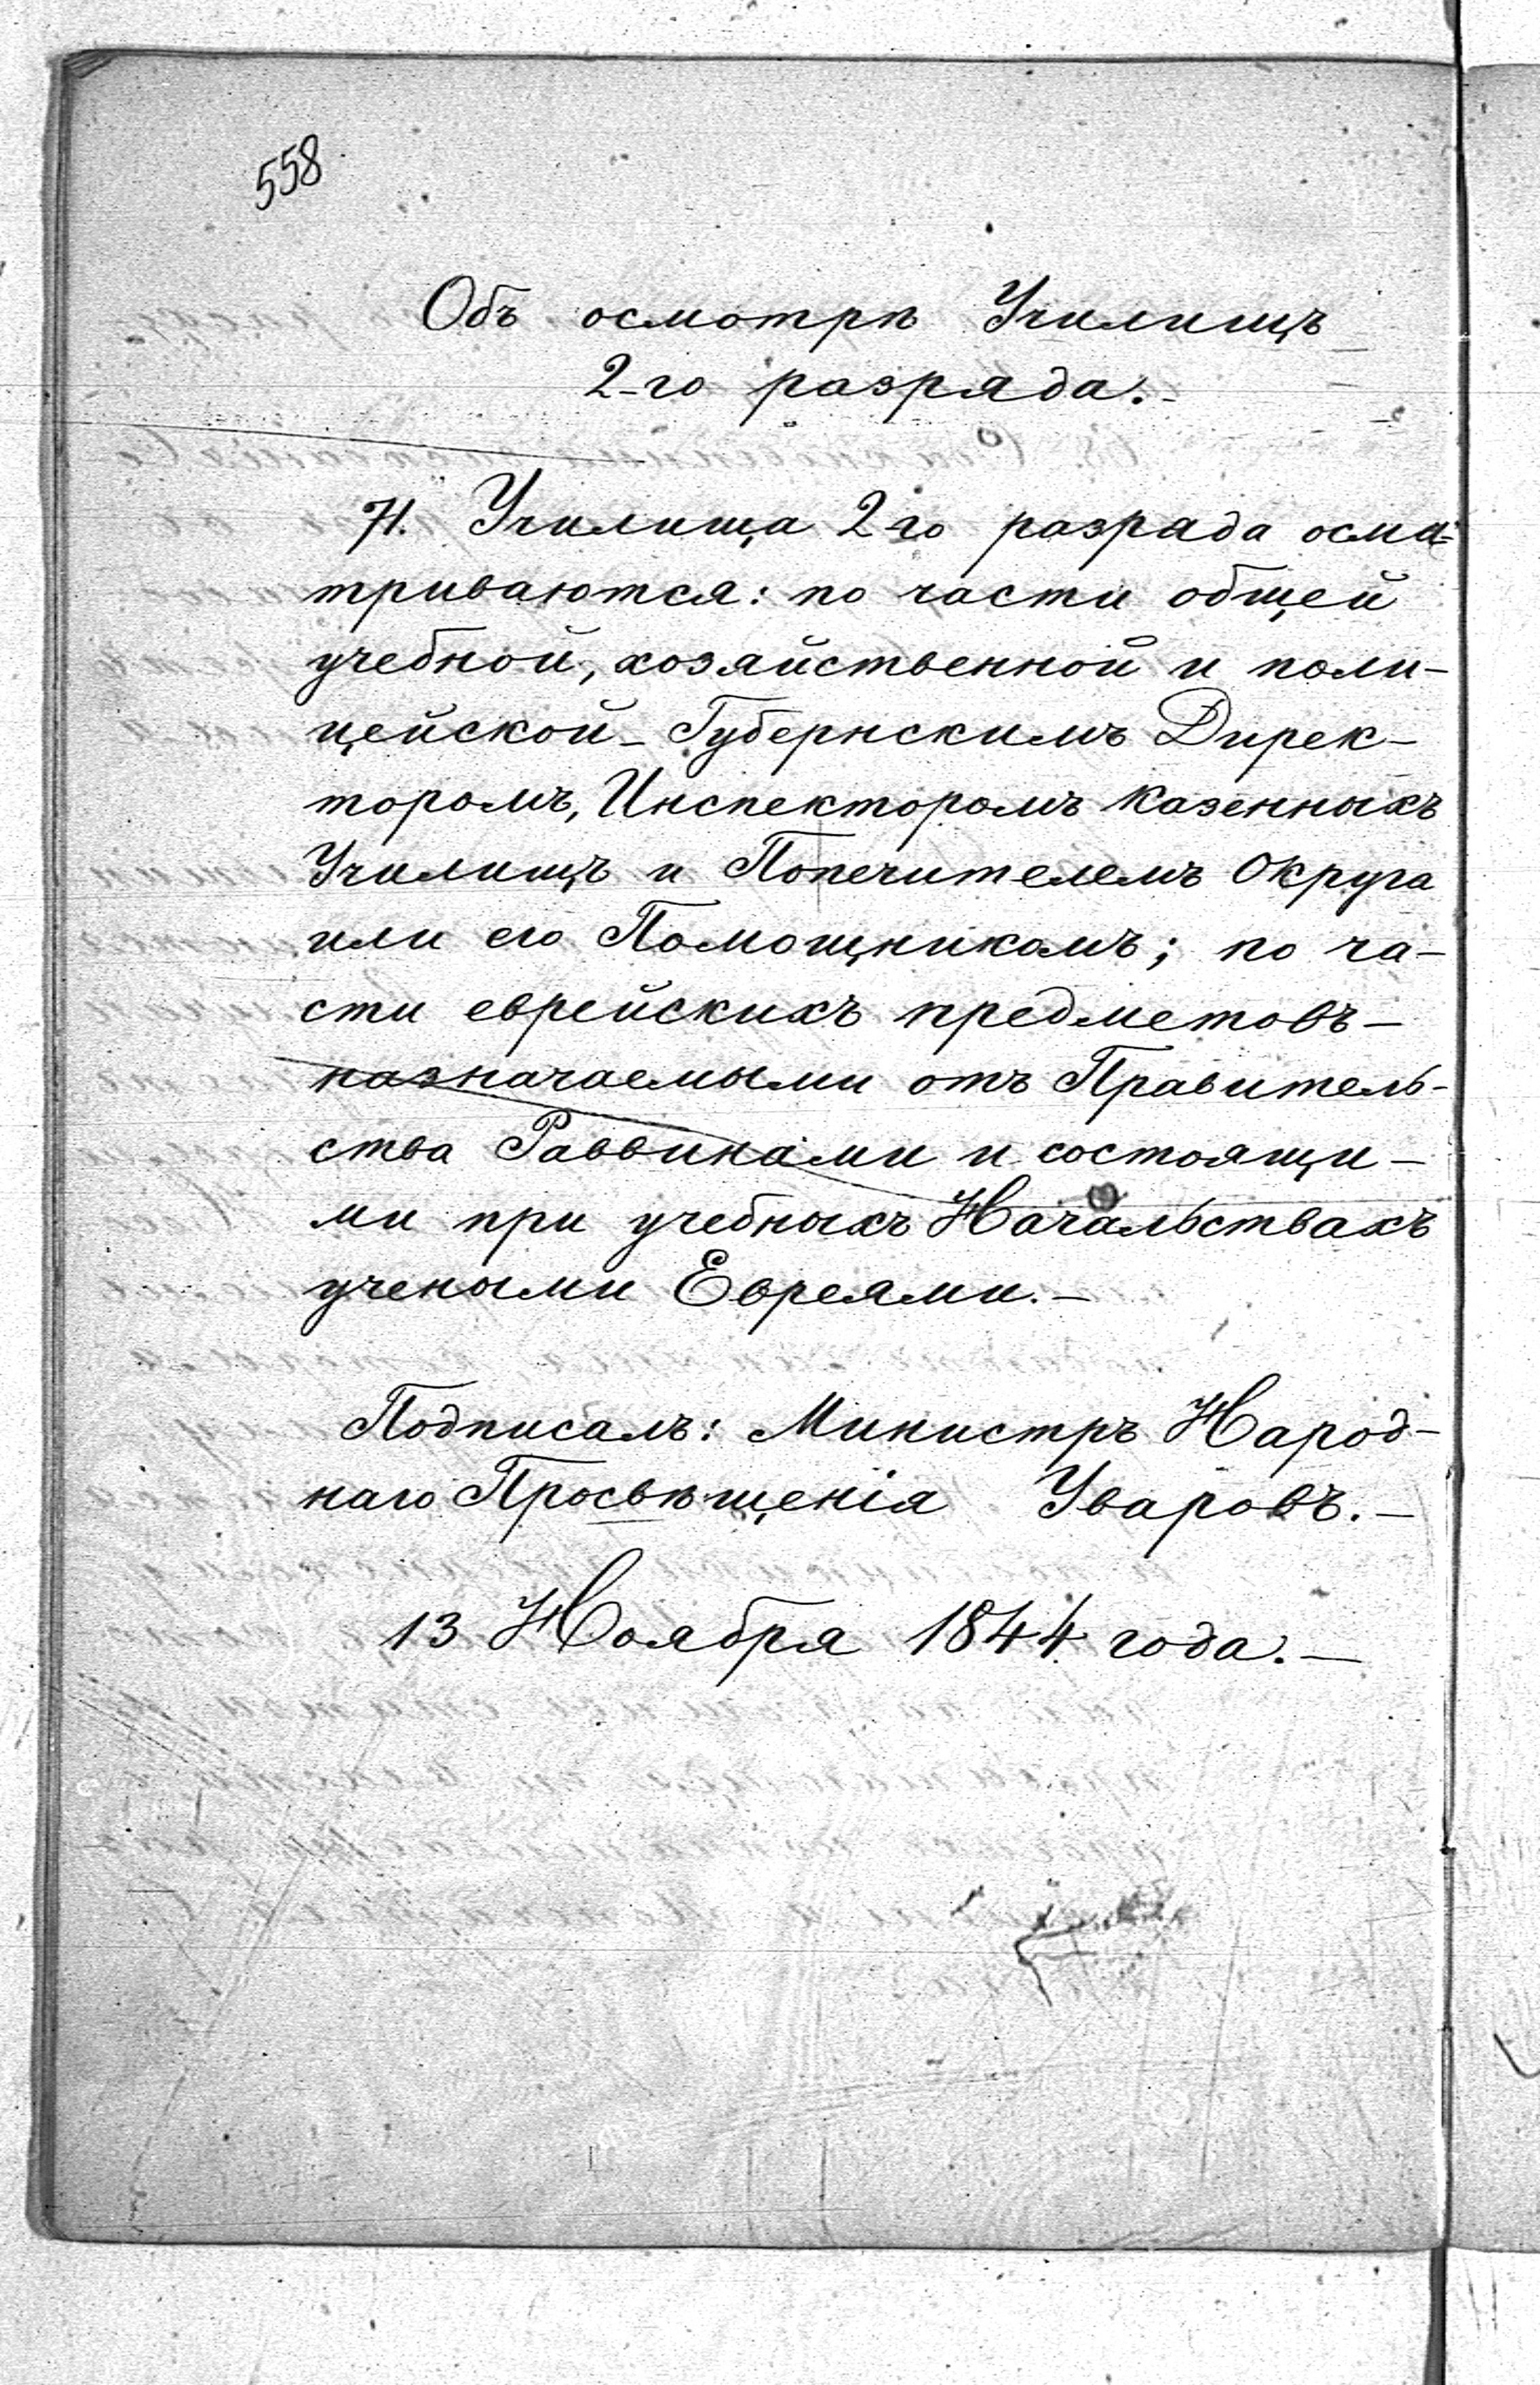 558
Объ осмотрѣ Училищъ
2-го разряда.-
71. Училища 2-го разряда осма-
триваются: по части общей
учебной, хозяйственной и поли-
цейской - Губернскимъ Дирек-
торомъ, Инспекторомъ казенныхъ
Училищъ и Попечителемъ Округа
или его Помощникомъ; по ча-
сти еврейскихъ предметовъ -
назначаемыми отъ Правитель-
ства Раввинами и состоящи-
ми при учебныхъ Начальствахъ
учеными Евреями. -
Подписалъ: Министръ Народ-
наго Просвѣщенія Уваровъ. -
13 Ноября 1844 года. -